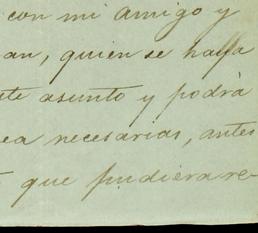 con mi amigo y
an, quien se halla
te asunto y podrá
ea necesarias, antes
que pudiera re-